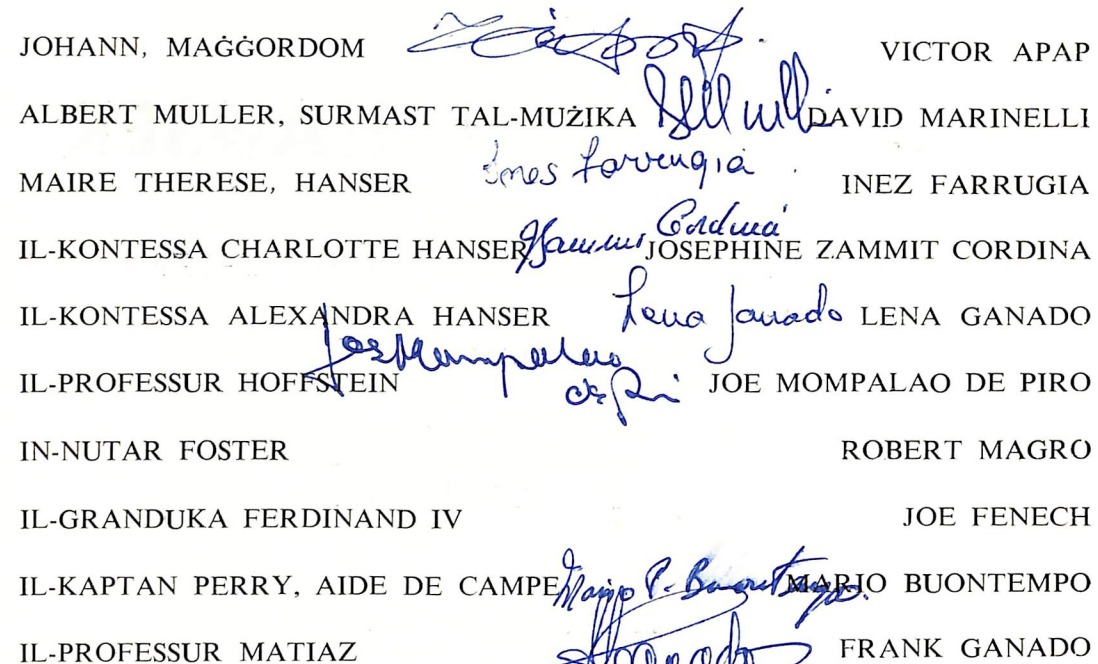 JOHANN, MAĠĠORDOM VICTOR APAP
ALBERT MULLER, SURMAST TAL-MUŻIKA DAVID MARINELLI
Ines Farrugia
MAIRE THERESE, HANSER INEZ FARRUGIA
Cordina
IL-KONTESSA CHARLOTTE HANSER JOSEPHINE ZAMMIT CORDINA
IL-KONTESSA ALEXANDRA HANSER Lena Ganado LENA GANADO
Joe Mompalao
de Piro
IL-PROFESSUR HOFFSTEIN JOE MOMPALAO DE PIRO
IN-NUTAR FOSTER ROBERT MAGRO
IL-GRANDUKA FERDINAND IV JOE FENECH
IL-KAPTAN PERRY, AIDE DE CAMPE Marjo P. Buontempo MARJO BUONTEMPO
IL-PROFESSUR MATIAZ FRANK GANADO